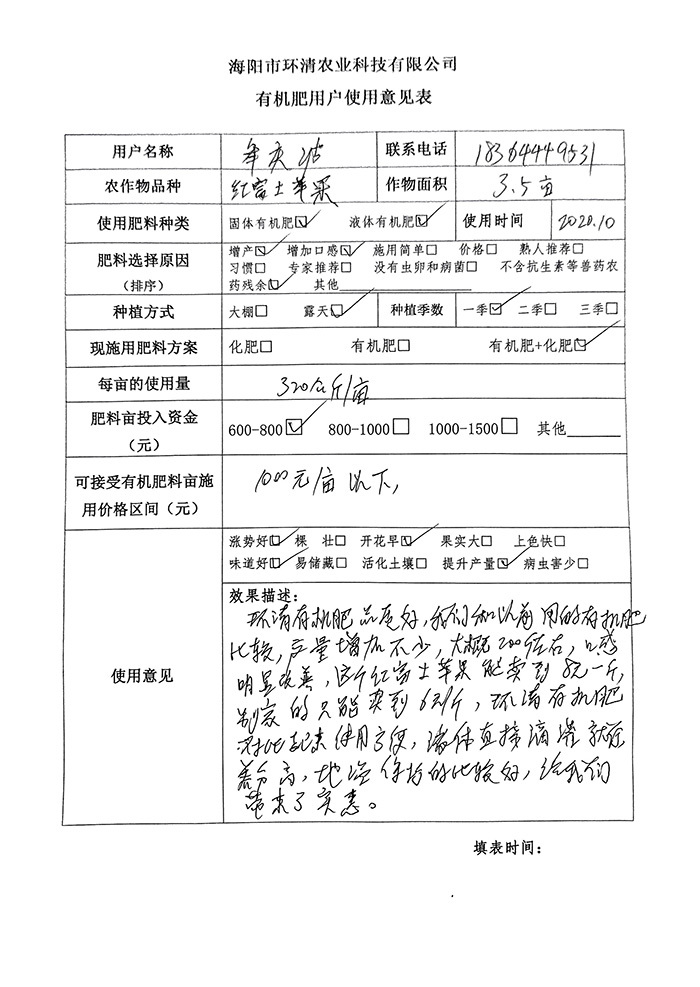 海阳市环清农业科技有限公司
有机肥用户使用意见表
用户名称 联系电话 18364449531
农作物品种 红富士苹果 作物面积 3.5亩
使用肥料种类 固体有机肥☑ 液体有机肥☑ 使用时间 2020.10
肥料选择原因 增产☑ 增加口感☑ 施用简单□ 价格□ 熟人推荐□
(排序) 习惯□ 专家推荐□ 没有虫卵和病菌□ 不含抗生素等兽药农
药残余☑ 其他
种植方式 大棚□ 露天☑ 种植季数 一季☑ 二季□ 三季□
现施用肥料方案 化肥□ 有机肥□ 有机肥+化肥☑
每亩的使用量 320公斤/亩
肥料亩投入资金 600-800☑ 800-1000□ 1000-1500□ 其他
(元)
可接受有机肥料亩施 元/亩以下,
用价格区间(元)
使用意见
涨势好☑ 棵 壮□ 开花早☑ 果实大□ 上色快□
味道好☑ 易储藏□ 活化土壤□ 提升产量☑ 病虫害少□
效果描述:
环清有机肥品质好,我们和以前用的有机肥
比较,产量增加不少,大概200斤左右,口感
明显改善,这个红富士苹果能卖到8元一斤,
别家的只能卖到6元/斤,环清有机肥
对比起来使用方便,液体直接滴灌就行
养分高,地温保持的比较好,给我们
带来了实惠。
填表时间: